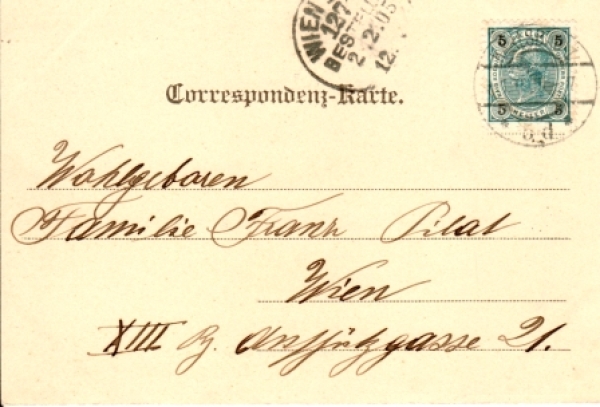 WIEN
127
BESTELLT
2.12.05
12.
5 5
5 5
5 d
Correspondenz-Karte.
Wohlgeboren
Familie Franz Pilat
Wien
XIII Bz. Anschützgasse 21.